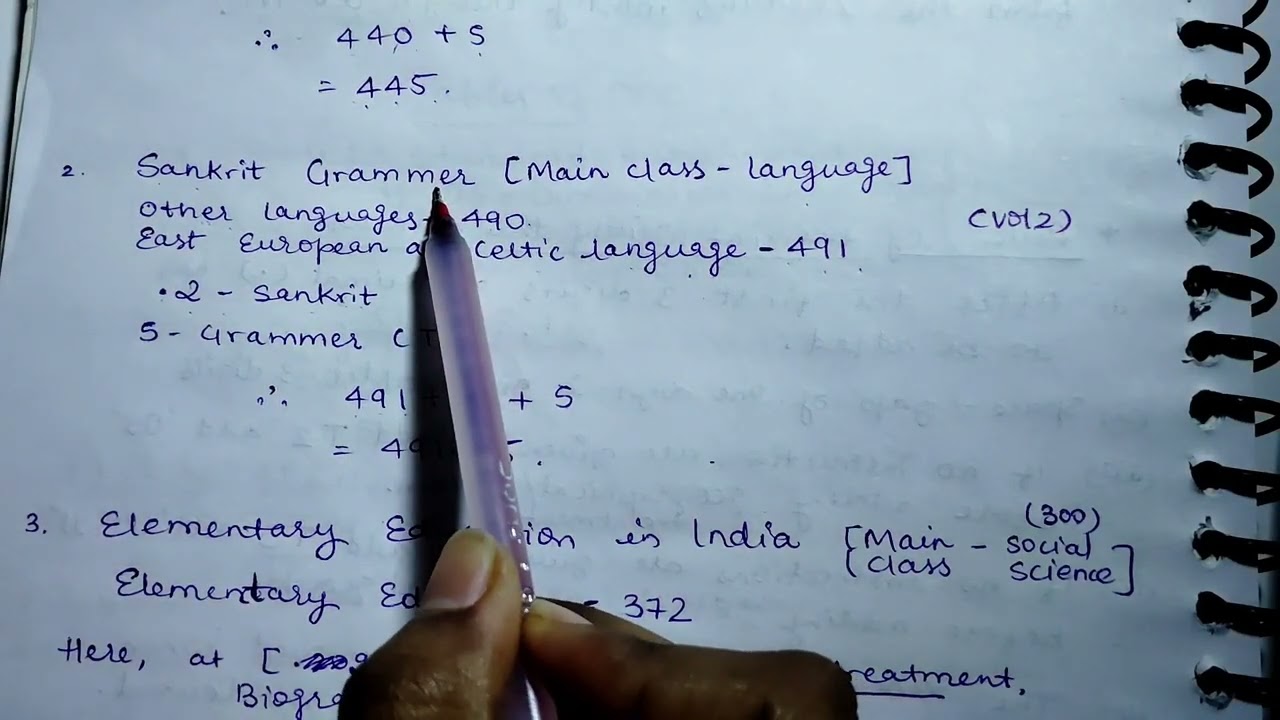 ∴ 440 + 5
= 445.
2. Sankrit Grammer [Main class - language]
Other languages - 490.
(Vol 2)
East European a Celtic language - 491
.2 - Sankrit
5 - Grammer (T
∴ 491 + 5
= 49 5.
3. Elementary Ed ion in India [Main class - social science] (300)
Elementary Ed - 372
Here, at [ reatment.
Biogra